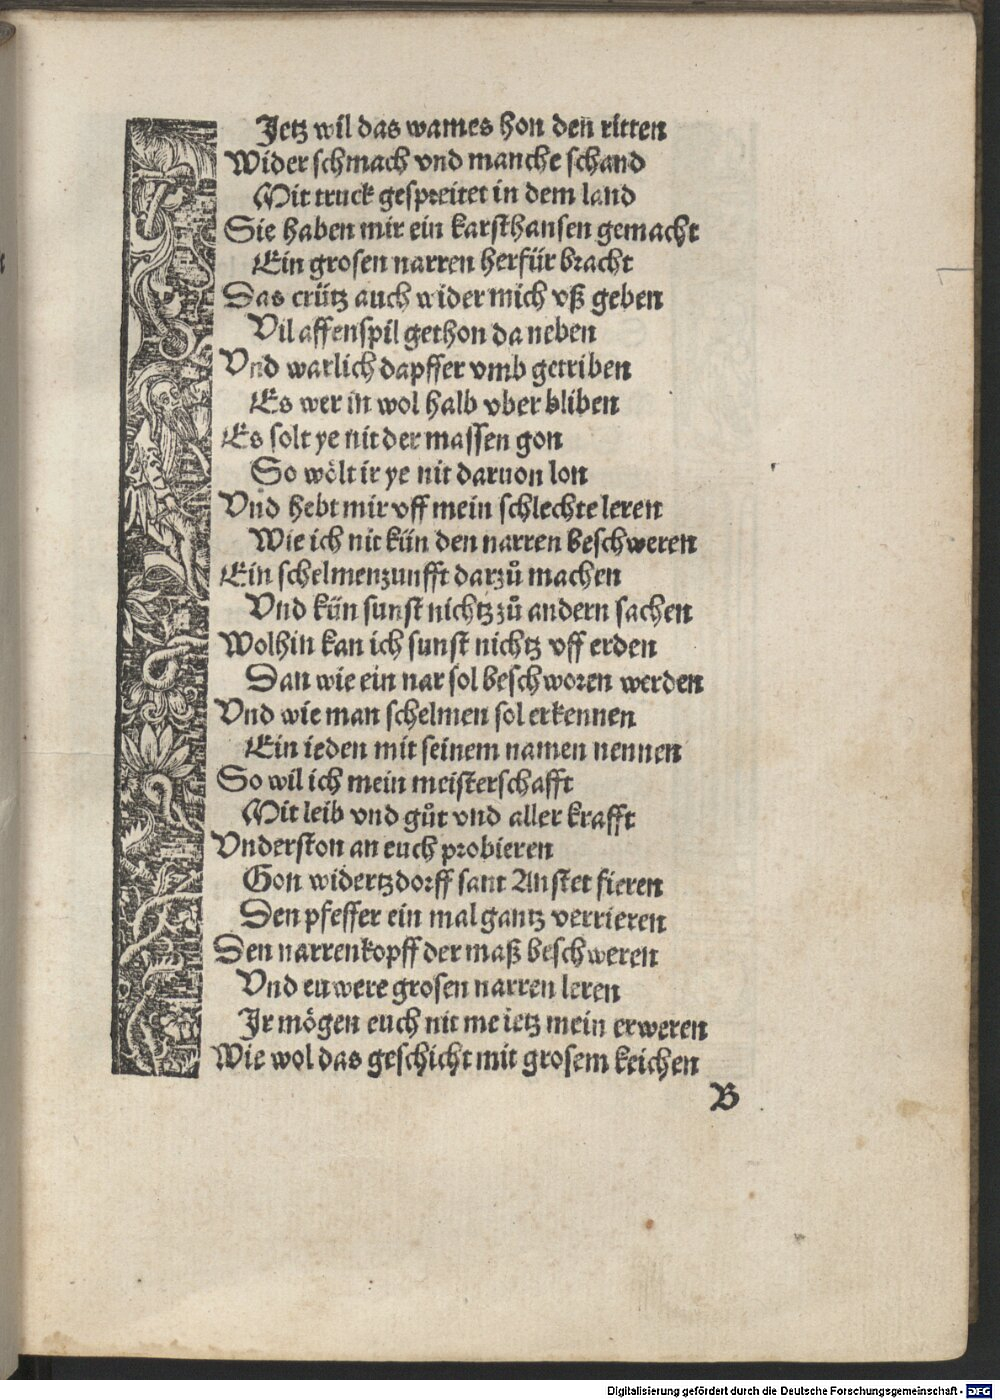 Jetz wil das wames hon den ritten
Wider schmach vnd manche schand
Mit truck gespreitet in dem land
Sie haben mir ein karsthansen gemacht
Ein grosen narren herfür bracht
Das crütz auch wider mich vß geben
Vil affenspil gethon da neben
Vnd warlich dapffer vmb getriben
Es wer in wol halb vber bliben
Es solt ye nit der massen gon
So wölt ir ye nit daruon lon
Vnd hebt mir vff mein schlechte leren
Wie ich nit kün den narren beschweren
Ein schelmenzunfft darzů machen
Vnd kün sunst nichtz zů andern sachen
Wolhin kan ich sunst nichtz vff erden
Dan wie ein nar sol beschworen werden
Vnd wie man schelmen sol erkennen
Ein ieden mit seinem namen nennen
So wil ich mein meisterschafft
Mit leib vnd gůt vnd aller krafft
Vnderston an euch probieren
Gon widertzdorff sant Anstet fieren
Den pfeffer ein mal gantz verrieren
Den narrenkopff der maß beschweren
Vnd euwere grosen narren leren
Ir mögen euch nit me ietz mein erweren
Wie wol das geschicht mit grosem keichen
B
Digitalisierung gefördert durch die Deutsche Forschungsgemeinschaft - DFG